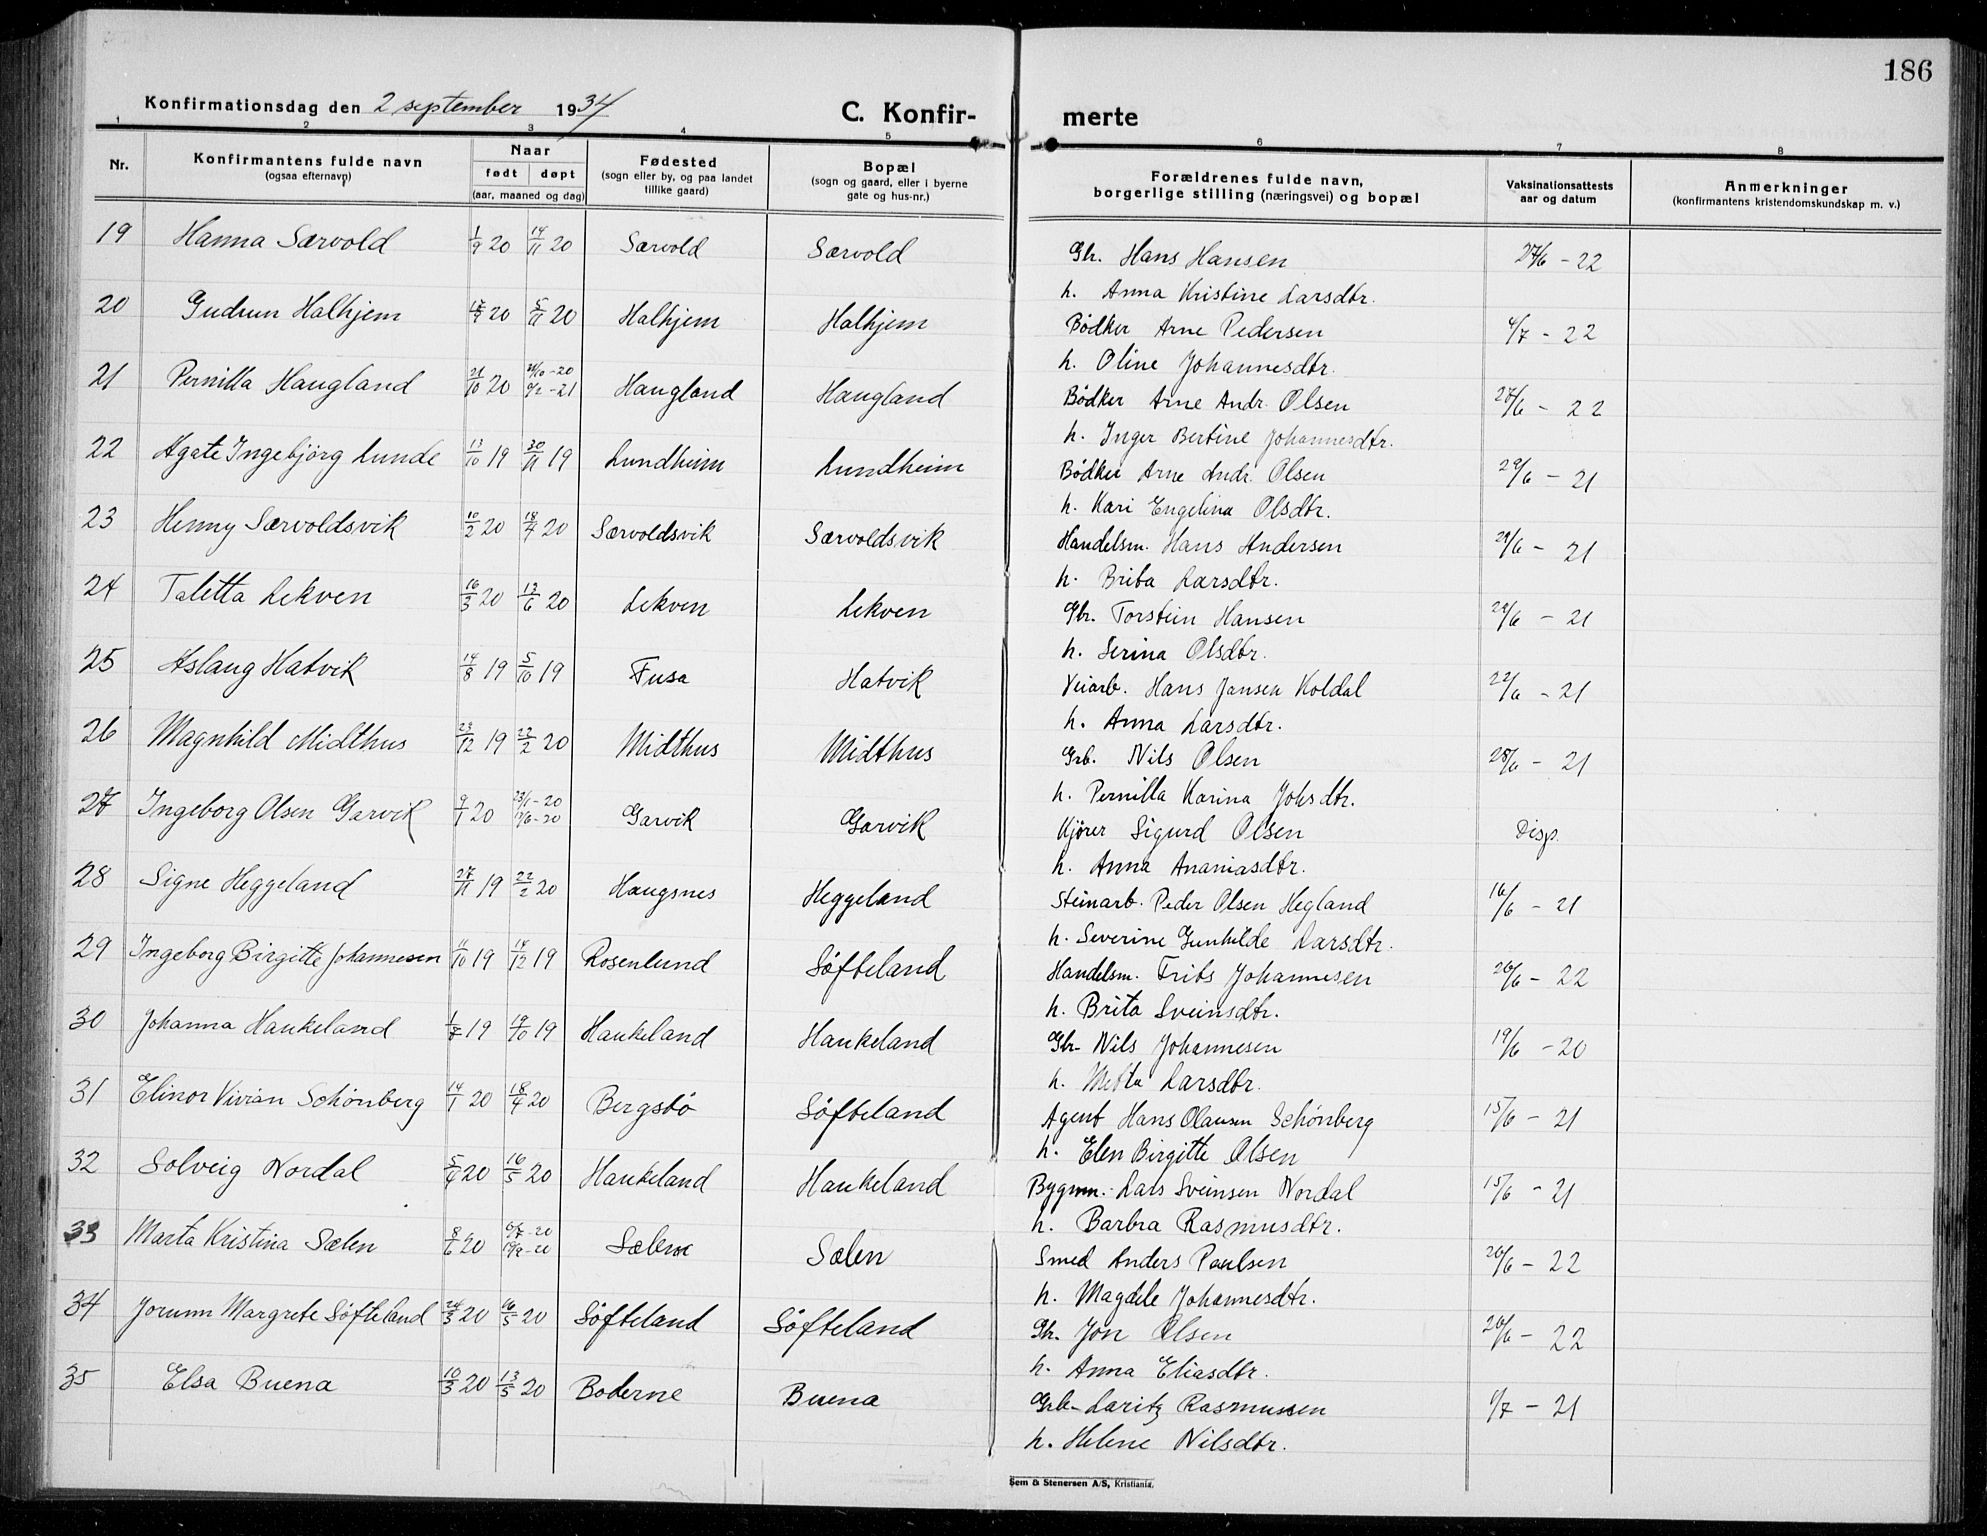 186
Konfirmationsdag den 2 september 1934
C. Konfir- merte
1 2 3 4 5 6 7 8
Nr.
Konfirmantens fulde navn
(ogsaa efternavn)
Naar
født døpt
(aar, maaned og dag)
Fødested
(sogn eller by, og paa landet
tillike gaard)
Bopæl
(sogn og gaard, eller i byerne
gate og hus-nr.)
Forældrenes fulde navn,
borgerlige stilling (næringsvei) og bopæl
Vaksinationsattests
aar og datum
Anmerkninger
(konfirmantens kristendomskundskap m. v.)
19 Hanna Særvold 1/9 20 14/11 20 Særvold Særvold Gbr. Hans Hansen 27/6 - 22
h. Anna Kristine Larsdtr.
20 Gudrun Halhjem 20 5/11 20 Halhjem Halhjem Bødker Arne Pedersen 4/7 - 22
h. Oline Johannesdtr.
21 Pernilla Haugland 21/10 20 - 20 - 21 Haugland Haugland Bødker Arne Andr. Olsen 27/6 - 22
h. Inger Bertine Johannesdtr.
22 Agate Ingebjørg Lunde 13/10 19 30/11 19 Lundheim Lundheim Bødker Arne Andr. Olsen 29/6 - 21
h. Kari Engelina Olsdtr.
23 Henny Særvoldsvik 10/2 20 18/4 20 Særvoldsvik Særvoldsvik Handelsm. Hans Andersen 29/6 - 21
h. Brita Larsdtr.
24 Taletta Lekven 16/3 20 12/6 20 Lekven Lekven Gbr. Torstein Hansen 29/6 - 21
h. Serina Olsdtr.
25 Aslaug Hatvik 14/8 19 5/10 19 Fusa Hatvik Veiarb. Hans Jansen Koldal 22/6 - 21
h. Anna Larsdtr.
26 Magnhild Midthus 23/12 19 22/2 20 Midthus Midthus Grb. Nils Olsen 28/6 - 21
h. Pernilla Karina Johsdtr.
27 Ingeborg Olsen Garvik 9/1 20 23/1 - 20 13/6 - 20 Garvik Garvik Kjører Sigurd Olsen Disp.
h. Anna Ananiasdtr.
28 Signe Heggeland 27/11 19 22/2 20 Haugsnes Heggeland Steinarb. Peder Olsen Hegland 16/6 - 21
h. Severine Gunhilde Larsdtr.
29 Ingeborg Birgitte Johannesen 11/10 19 14/12 19 Rosenlund Søfteland Handelsm. Frits Johannesen 26/6 - 22
h. Brita Sveinsdtr.
30 Johanna Haukeland 1/7 19 19/10 19 Haukeland Haukeland Gbr. Nils Johannesen 19/6 - 20
h. Metta Larsdtr.
31 Elinor Vivian Schønberg 14/1 20 18/4 20 Bergsbø Søfteland Agent Hans Olausen Schønberg 15/6 - 21
h. Elen Birgitte Olsen
32 Solveig Nordal 5/4 20 16/5 20 Haukeland Haukeland Bygmm. Lars Sveinsen Nordal 15/6 - 21
h. Barbra Rasmusdtr.
33 Marta Kristina Sælen 8/6 20 6/7 - 20 19/9 - 20 Sælen Sælen Smed Anders Paulsen 26/6 - 22
h. Magdele Johannesdtr.
34 Jorunn Margrete Søfteland 24/3 20 16/5 20 Søfteland Søfteland Gbr. Jon Olsen 26/6 - 22
h. Anna Eliasdtr.
35 Elsa Buena 10/3 20 13/5 20 Boderne Buena Grb. Laritz Rasmussen 1/7 - 21
h. Helene Nilsdtr.
Sem & Stenersen A/S, Kristiania.